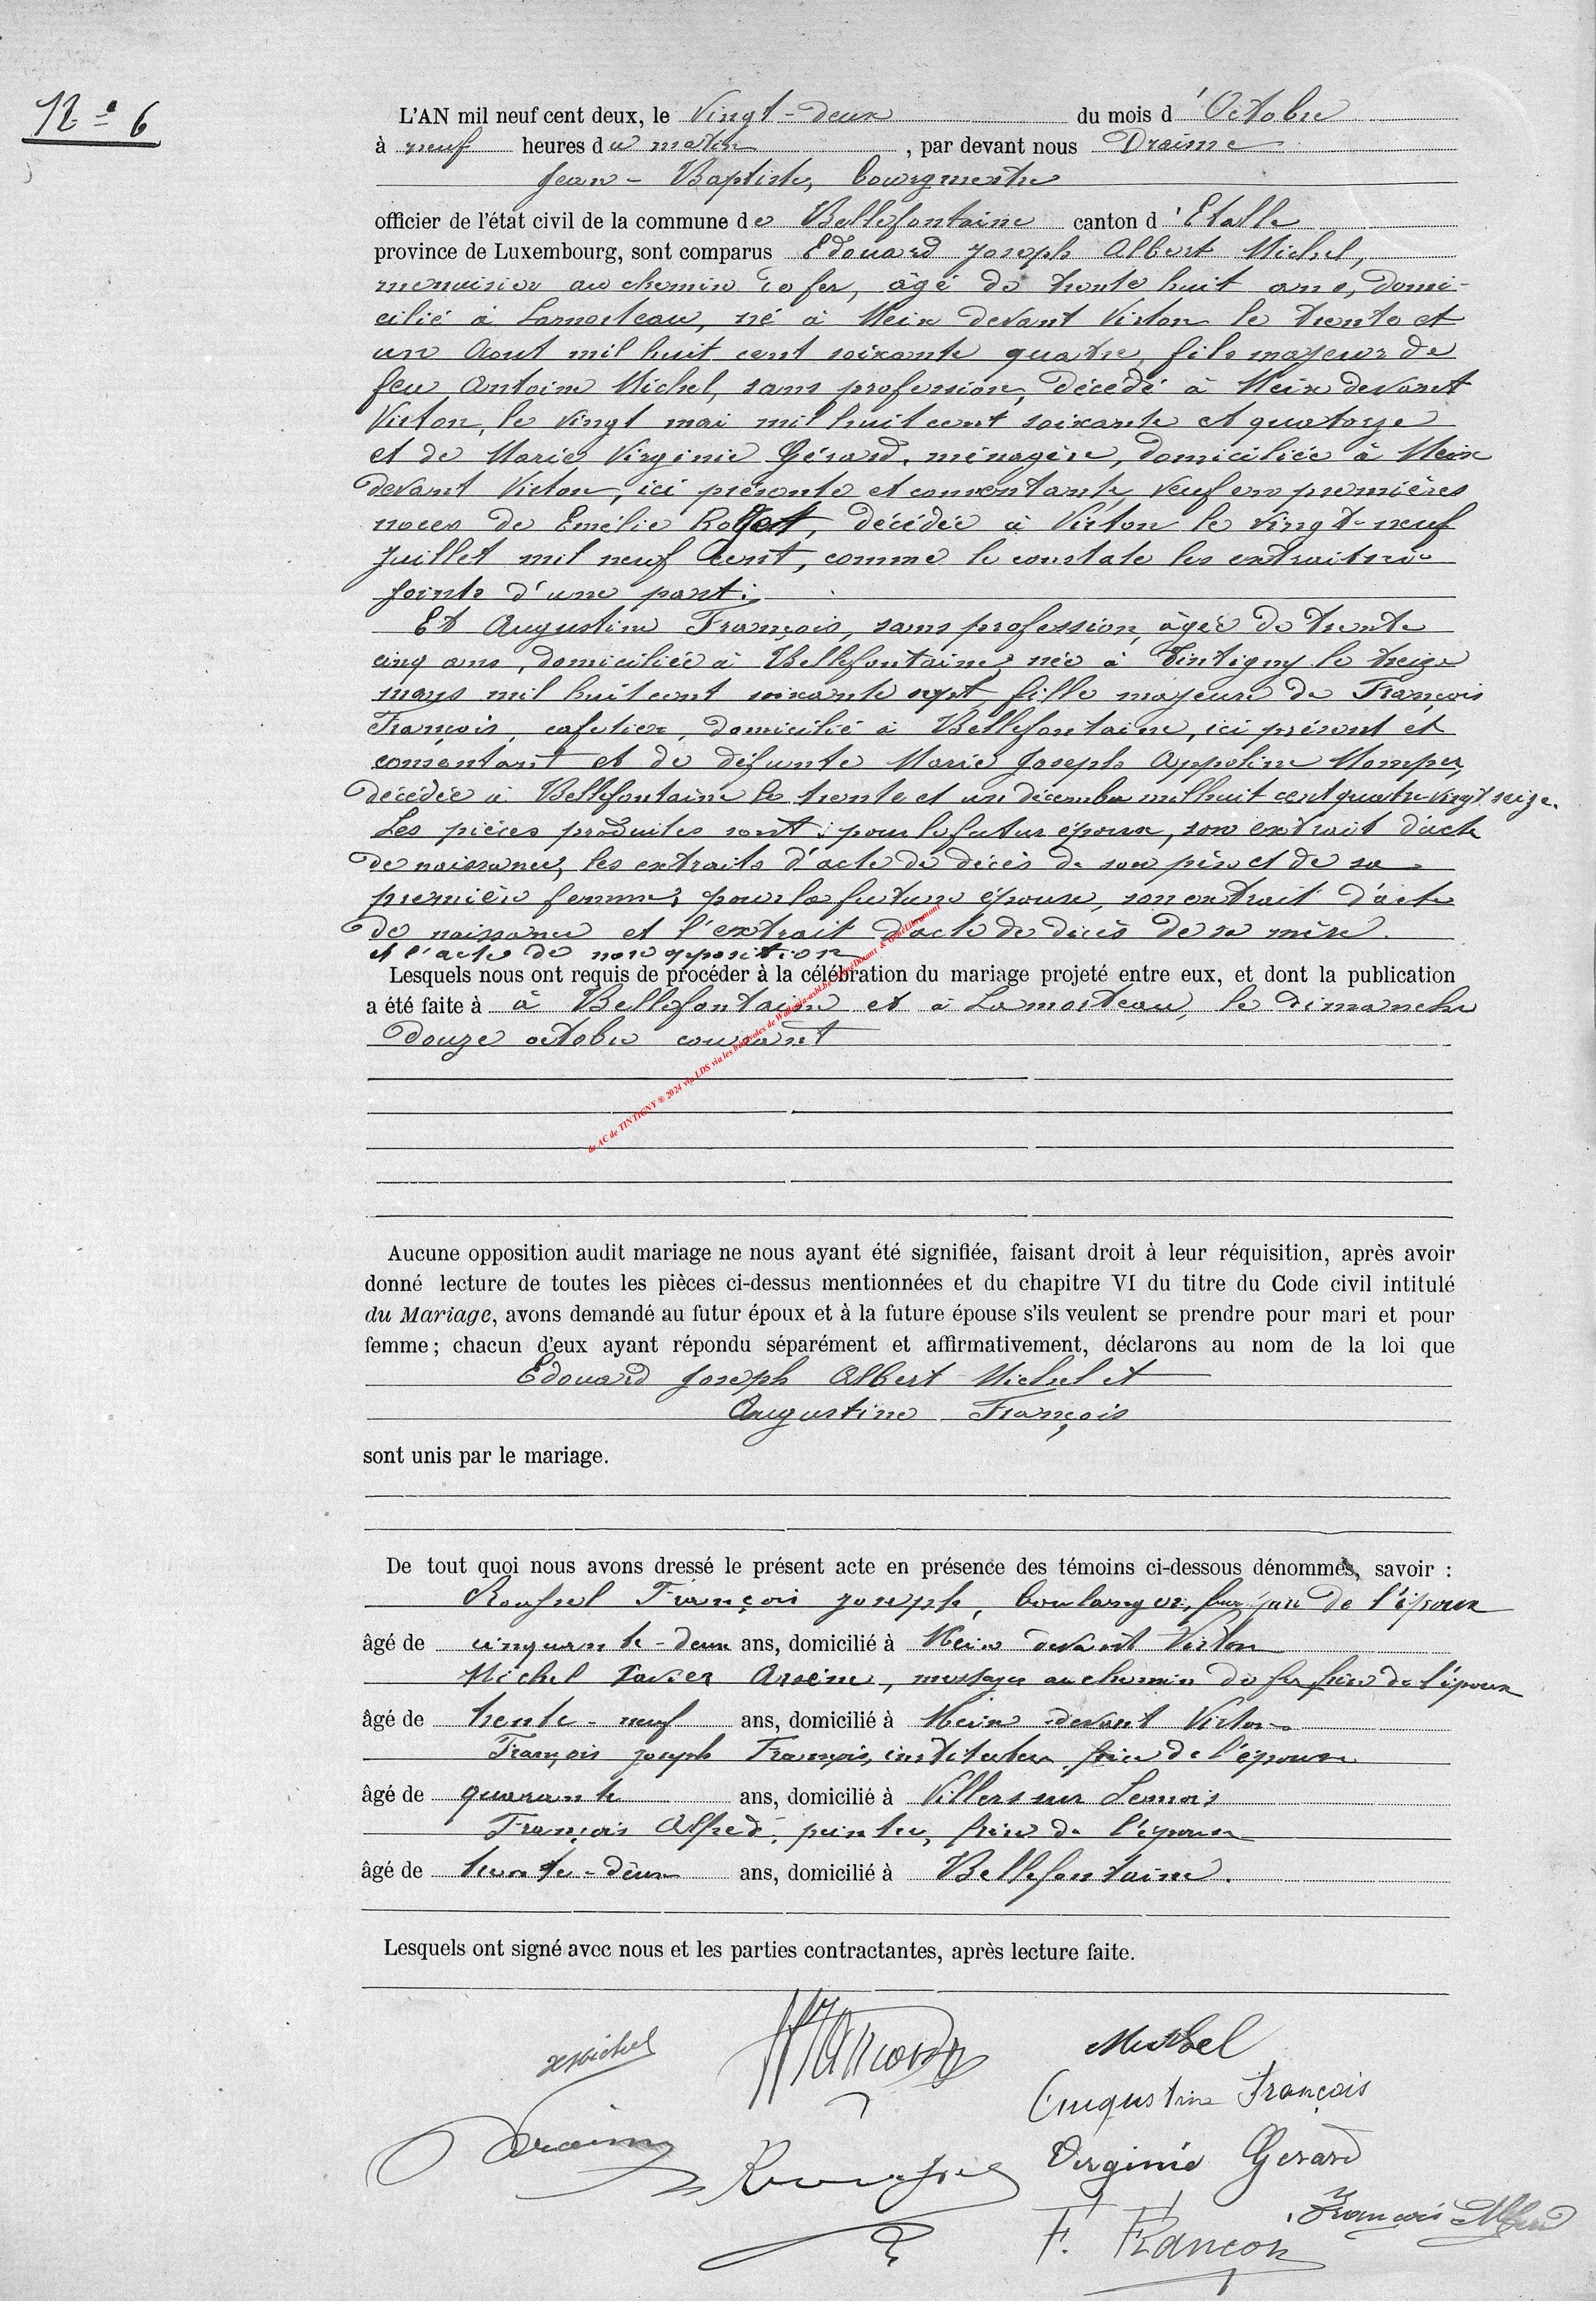 N° 6
L'AN mil neuf cent deux, le Vingt-deux du mois d'Octobre
à neuf heures du matin, par devant nous Draime
Jean-Baptiste, bourgmestre
officier de l'état civil de la commune de Bellefontaine canton d'Etalle
province de Luxembourg, sont comparus Edouard Joseph Albert Michel,
menuisier au chemin de fer, âgé de trente huit ans, domi-
cilié à Lamorteau, né à Meix devant Virton le trente et
un Aout mil huit cent soixante quatre, fils majeur de
feu Antoine Michel, sans profession, décédé à Meix devant
Virton, le vingt mai mil huit cent soixante et quatorze
et de Marie Virginie Gérard, ménagère, domiciliée à Meix
devant Virton, ici présente et consentante, veuf en premières
noces de Emélie décédée à Virton le vingt-neuf
juillet mil neuf cent, comme le constate les extraits ci-
joints d'une part;
Et Augustine François, sans profession, âgée de trente
cinq ans, domiciliée à Bellefontaine, née à Tintigny le treize
mars mil huit cent soixante sept, fille majeure de François
François, cafetier, domicilié à Bellefontaine, ici présent et
consentant et de défunte Marie Joseph Appoline Momper,
décédée à Bellefontaine le trente et un décembre mil huit cent quatre-vingt seize.
Les pièces produites sont: pour le futur époux, son extrait d'acte
de naissance, les extraits d'acte de décès de son père et de sa
première femme; pour la future épouse, son extrait d'acte
de naissance et l'extrait d'acte de décès de sa mère.
et l'acte de non opposition
Lesquels nous ont requis de procéder à la célébration du mariage projeté entre eux, et dont la publication
a été faite à à Bellefontaine et à Lamorteau, le dimanche
douze octobre courant
de AC de TINTIGNY ® 2024 via LDS via les bénévoles de Wallonia-asbl.be GénéDinant & GénéLibramont
Aucune opposition audit mariage ne nous ayant été signifiée, faisant droit à leur réquisition, après avoir
donné lecture de toutes les pièces ci-dessus mentionnées et du chapitre VI du titre du Code civil intitulé
du Mariage, avons demandé au futur époux et à la future épouse s'ils veulent se prendre pour mari et pour
femme; chacun d'eux ayant répondu séparément et affirmativement, déclarons au nom de la loi que
Edouard Joseph Albert Michel et
Augustine François
sont unis par le mariage.
De tout quoi nous avons dressé le présent acte en présence des témoins ci-dessous dénommés, savoir :
François Joseph, boulanger, de l'époux
âgé de cinquante-deux ans, domicilié à Meix devant Virton
Michel Xavier Arsène, messager au chemin de fer frère de l'époux
âgé de trente-neuf ans, domicilié à Meix devant Virton
François Joseph François, instituteur, frère de l'épouse
âgé de quarante ans, domicilié à Villers sur Semois
François Alfred, peintre, frère de l'épouse
âgé de trente-deux ans, domicilié à Bellefontaine.
Lesquels ont signé avec nous et les parties contractantes, après lecture faite.
XMichel François Michel
Augustine François
Draime Virginie Gerard
François Alfred
F. François